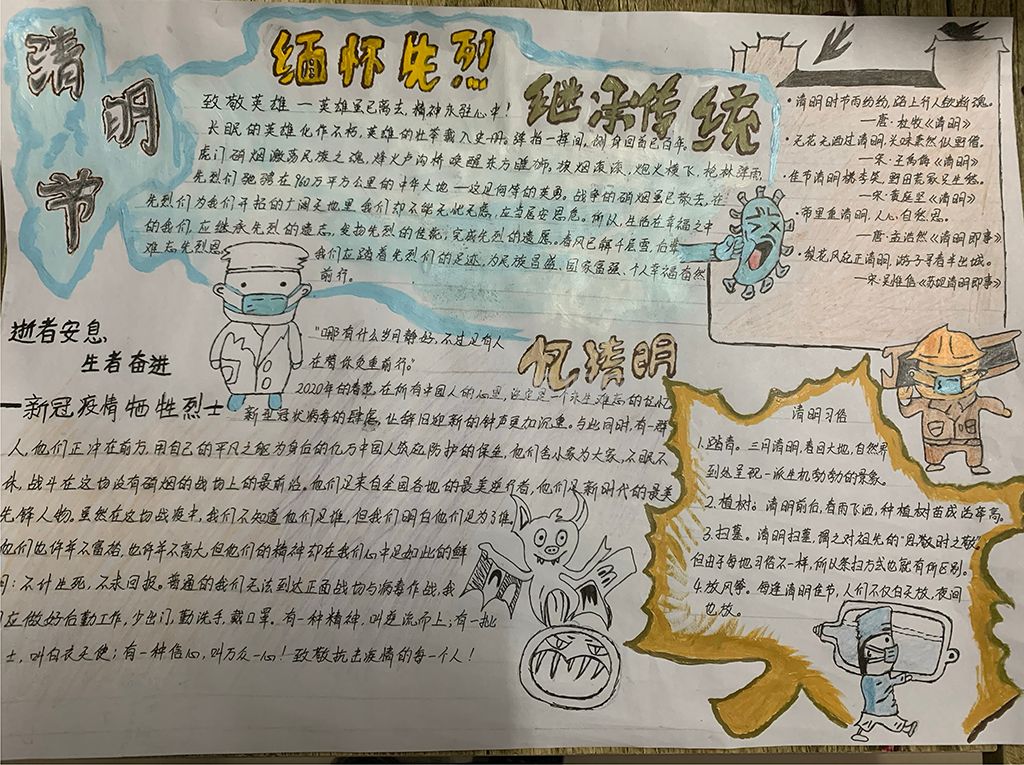 清
明
节
缅怀先烈
继承传统
致敬英雄—英雄虽已离去,精神永驻心中!
长眠的英雄化作不朽,英雄的壮举载入史册。弹指一挥间,侧身回首已百年。
虎门硝烟激荡民族之魂,烽火卢沟桥唤醒东方雄狮。狼烟滚滚,炮火横飞,枪林弹雨,
先烈们驰骋在960万平方公里的中华大地—这是何等的英勇。战争的硝烟虽已散去,在
先烈们为我们开拓的广阔天地里,我们却不能无忧无虑,应当居安思危。所以,生活在幸福之中
的我们,应继承先烈的遗志,发扬先烈的
完成先烈的遗愿。春风已解千层雪,后辈
难忘先烈恩。
我们应踏着先烈们的足迹,为民族昌盛、国家富强、个人幸福奋然
前行。
·清明时节雨纷纷,路上行人欲断魂。
—唐·杜牧《清明》
·无花无酒过清明,兴味萧然似野僧。
—宋·王禹偁《清明》
·佳节清明桃李笑,野田荒冢只生愁。
—宋·黄庭坚《清明》
·帝里重清明,人心自然愁。
—唐·孟浩然《清明即事》
·梨花风起正清明,游子寻春半出城。
—宋·吴惟信《苏堤清明即事》
逝者安息
生者奋进
—新冠疫情牺牲烈士
"哪有什么岁月静好,不过是有人
在替你负重前行。"
2020年的春节,在所有中国人的心里,注定是一个永生难忘的记忆
新型冠状病毒的肆虐,让辞旧迎新的钟声更加沉重。与此同时,有一群
人,他们正冲在前方,用自己的平凡之能为身后的亿万中国人筑应防护的保垒,他们舍小家为大家,不眠不
休,战斗在这场没有硝烟的战场上的最前沿。他们是来自全国各地的最美逆行者,他们是新时代的最美
先锋人物。虽然在这场战疫中,我们不知道他们是谁,但我们明白他们是为了谁。
他们也许并不富裕,也许并不高大,但他们的精神却在我们心中是如此的鲜
明:不计生死,不求回报。普通的我们无法到达正面战场与病毒作战,我
应做好后勤工作,少出门,勤洗手,戴口罩。有一种精神,叫逆流而上;有一批
士,叫白衣天使;有一种信心,叫万众一心!致敬抗击疫情的每一个人!
忆清明
清明习俗
1.踏青。三月清明,春回大地,自然界
到处呈现一派生机勃勃的景象。
2.植树。清明前后,春雨飞洒,种植树苗成活率高。
3.扫墓。清明扫墓,谓之对祖先的"思敬时之敬"。
但由于每地习俗不一样,所以祭扫方式也就有所区别。
4.放风筝。每逢清明佳节,人们不仅白天放,夜间
也放。